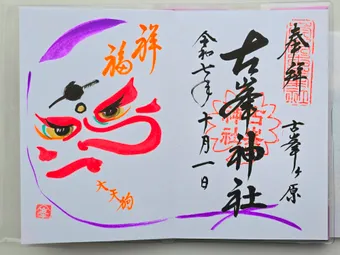 奉拝
古峯ヶ原
古峯神社
令和七年十月一日
祥
福
大天狗